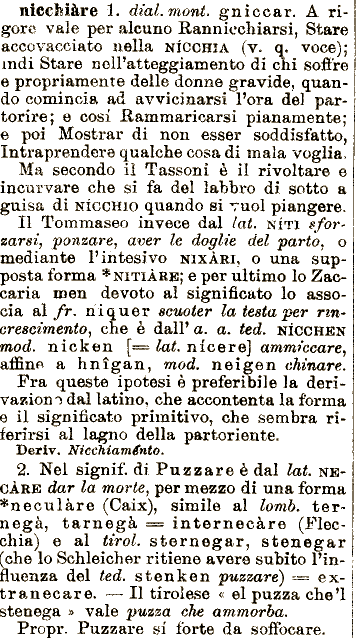 nicchiàre 1. dial. mont. gniccar. A ri-
gore vale per alcuno Rannicchiarsi, Stare
accovacciato nella NÍCCHIA (v. q. voce);
indi Stare nell'atteggiamento di chi soffre
e propriamente delle donne gravide, quan-
do comincia ad avvicinarsi l'ora del par-
torire; e cosí Rammaricarsi pianamente;
e poi Mostrar di non esser soddisfatto,
Intraprendere qualche cosa di mala voglia.
Ma secondo il Tassoni è il rivoltare e
incurvare che si fa del labbro di sotto a
guisa di NICCHIO quando si vuol piangere.
Il Tommaseo invece dal lat. NÍTI sfor-
zarsi, ponzare, aver le doglie del parto, o
mediante l'intesivo NIXÀRI, o una sup-
posta forma *NITIÀRE; e per ultimo lo Zac-
caria men devoto al significato lo asso-
cia al fr. niquer scuoter la testa per rin-
crescimento, che è dall' a. a. ted. NÍCCHEN
mod. nicken [= lat. nícere] ammiccare,
affine a hnîgan, mod. neigen chinare.
Fra queste ipotesi è preferibile la deri-
vazione dal latino, che accontenta la forma
e il significato primitivo, che sembra ri-
ferirsi al lagno della partoriente.
Deriv. Nicchiaménto.
2. Nel signif. di Puzzare è dal lat. NE-
CÀRE dar la morte, per mezzo di una forma
*neculàre (Caix), simile al lomb. ter-
negà, tarnegà = internecàre (Flec-
chia) e al tirol. sternegar, stenegar
(che lo Schleicher ritiene avere subito l'in-
fluenza del ted. stenken puzzare) = ex-
tranecare. — Il tirolese « el puzza che'l
stenega » vale puzza che ammorba.
Propr. Puzzare sí forte da soffocare.